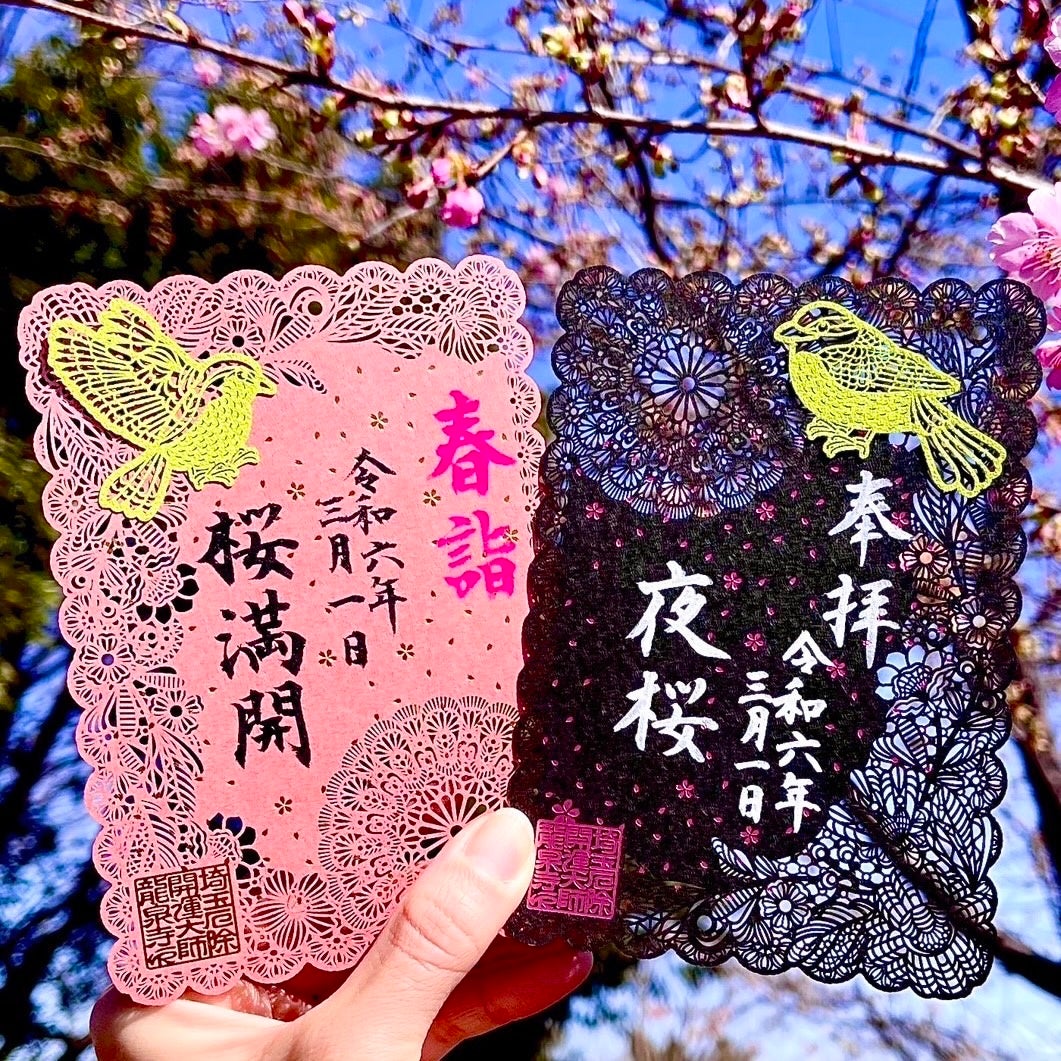 春詣
令和六年
三月一日
桜満開
埼玉厄除
開運大師
龍泉寺印
奉拝
令和六年
三月一日
夜桜
埼玉厄除
開運大師
龍泉寺印